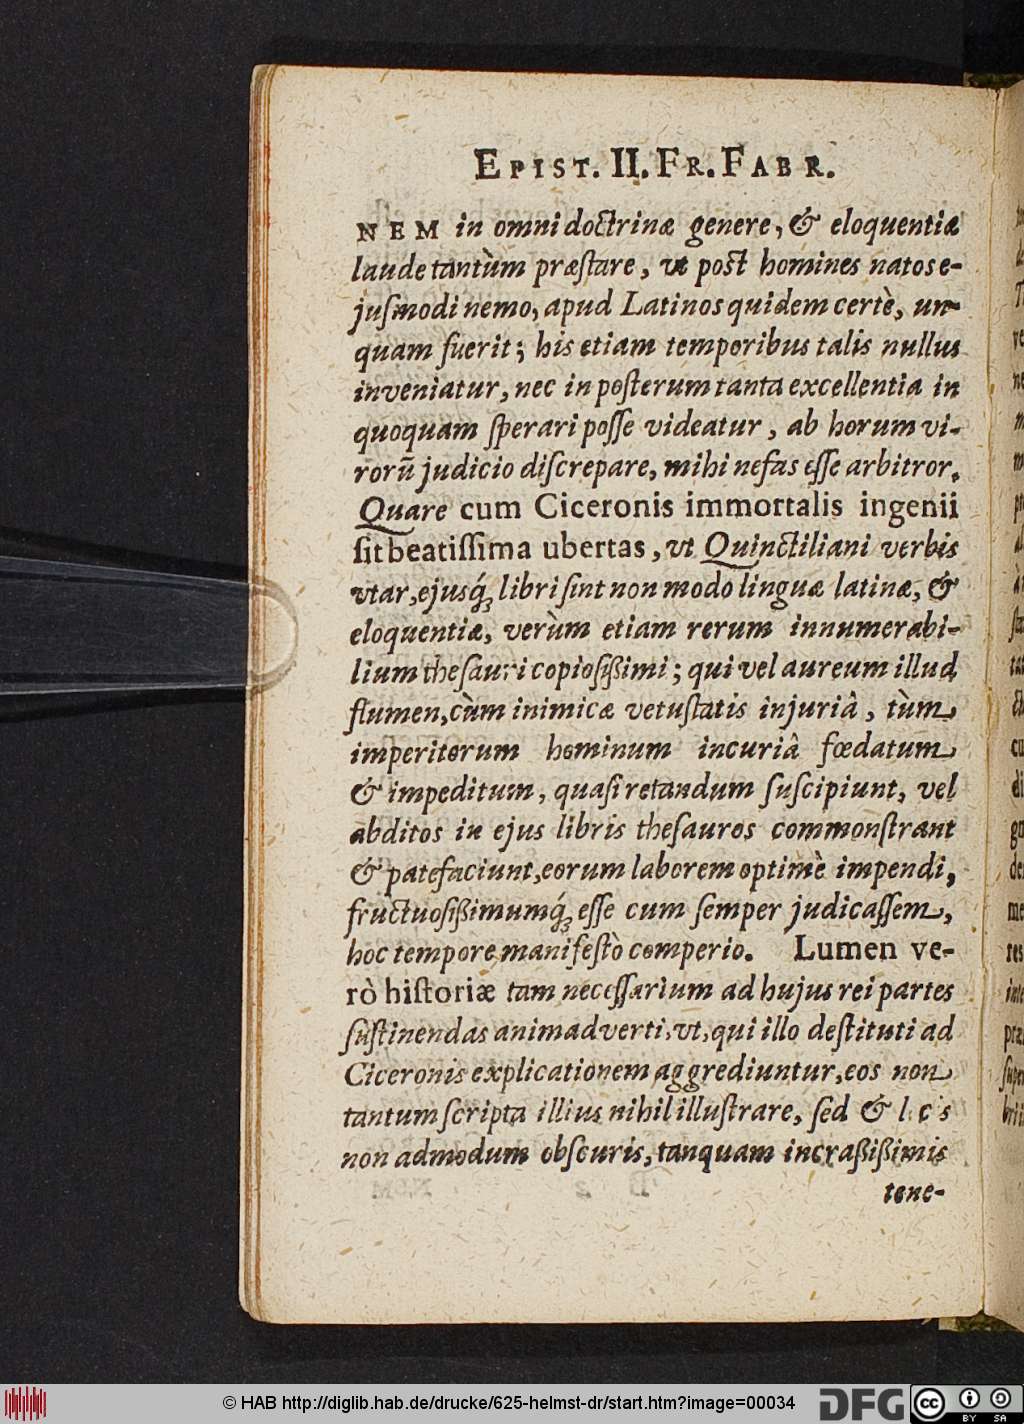 EPIST. II. FR. FABR.
NEM in omni doctrinæ genere, & eloquentiæ
laude tantùm præſtare, vt poſt homines natos e-
juſmodi nemo, apud Latinos quidem certè, un-
quam fuerit; his etiam temporibus talis nullus
inveniatur, nec in poſterum tanta excellentia in
quoquam ſperari poſſe videatur, ab horum vi-
rorū judicio diſcrepare, mihi nefas eſſe arbitror.
Quare cum Ciceronis immortalis ingenii
ſit beatiſſima ubertas, vt Quinctiliani verbis
vtar, ejusq́; libri ſint non modo linguæ latinæ, &
eloquentiæ, verùm etiam rerum innumerabi-
lium theſauri copioſißimi; qui vel aureum illud
flumen, cùm inimicæ vetuſtatis injuriâ, tùm
imperitorum hominum incuriâ fœdatum
& impeditum, quaſi retandum ſuſcipiunt, vel
abditos in ejus libris theſauros commonſtrant
& patefaciunt, eorum laborem optimè impendi,
fructuoſißimumq́; eſſe cum ſemper judicaſſem,
hoc tempore manifeſtò comperio. Lumen ve-
rò hiſtoriæ tam neceſſarium ad hujus rei partes
ſuſtinendas animadverti, vt, qui illo deſtituti ad
Ciceronis explicationem aggrediuntur, eos non
tantum ſcripta illius nihil illuſtrare, ſed & locis
non admodum obſcuris, tanquam in craßißimis
tene-
© HAB http://diglib.hab.de/drucke/625-helmst-dr/start.htm?image=00034
DFG
cc
BY SA